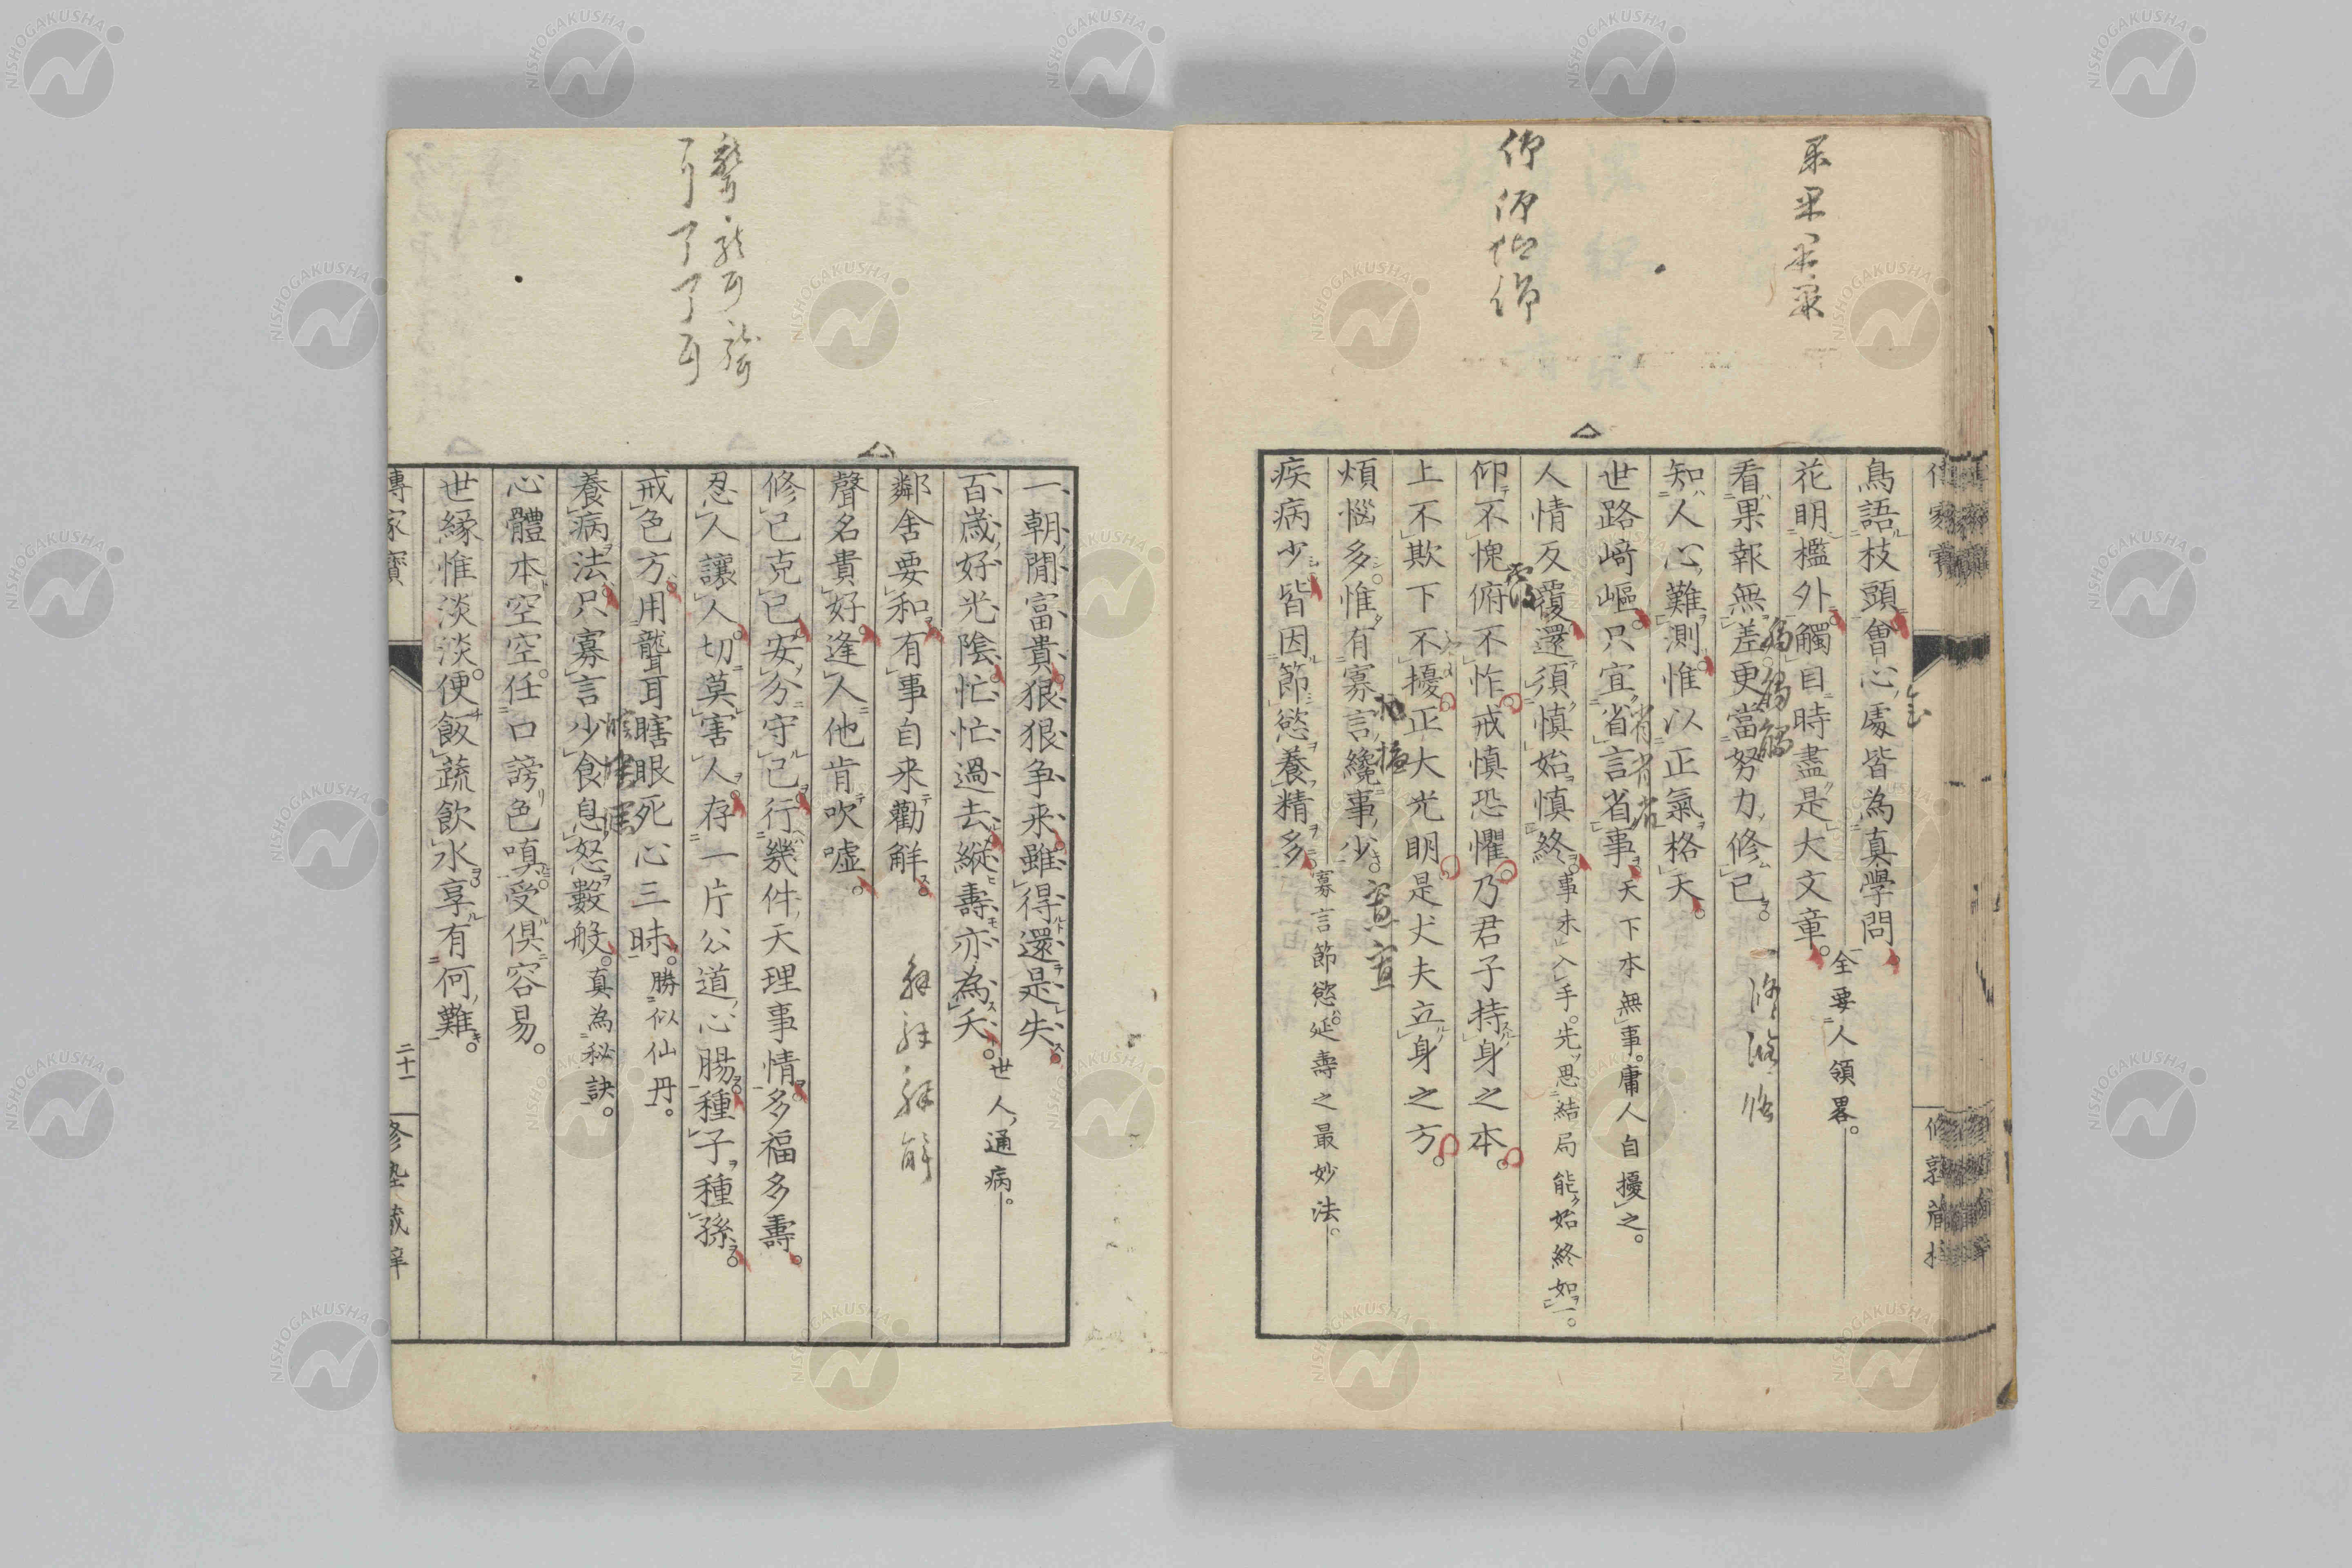 鳥語枝頭會心處皆為真學問
花明檻外觸目時盡是大文章。全要人領畧。
看果報無差更當努力修己。
知人心難測惟以正氣格天。
世路﨑嶇只宜省言省事。天下本無事。庸人自擾之。
人情反覆還須慎始慎終。事未入手。先思結局能始終如一。
仰不愧俯不怍戒慎恐懼乃君子持身之本。
上不欺下不擾正大光明是丈夫立身之方。
煩惱多惟有寡言纔事少。
疾病少皆因節慾養精多。寡言節慾。延壽之最妙法。
一朝閒富貴狠狠争来雖得還是失。
百歲好光陰忙忙過去縱壽亦為夭。世人通病。
鄰舍要和有事自来勸觧。
聲名貴好逢人他肯吹嘘。
修己克己安分守己行幾件天理事情多福多壽。
忍人讓人切莫害人存一片公道心腸種子種孫。
戒色方。用聾耳瞎眼死心三昧。勝似仙丹。
養病法。只寡言少食息怒數般。真為秘訣。
心體本空空。任口謗色嗔。受俱容易。
世緣惟淡淡。便飯蔬飲水享有何難。
傳家寶
二十一